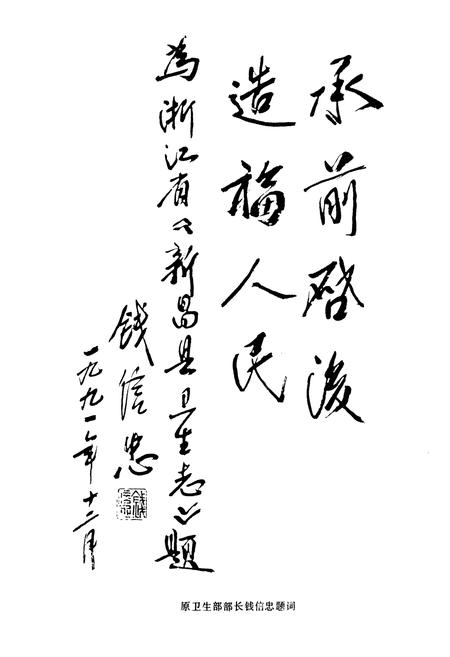 承前啓後
造福人民
為浙江省《新昌县卫生志》题
钱信忠
一九九一年十二月
原卫生部部长钱信忠题词